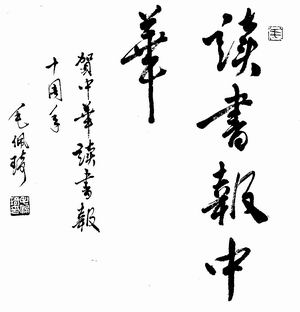 讀書報中
華
賀中華讀書報
十周年
毛佩琦